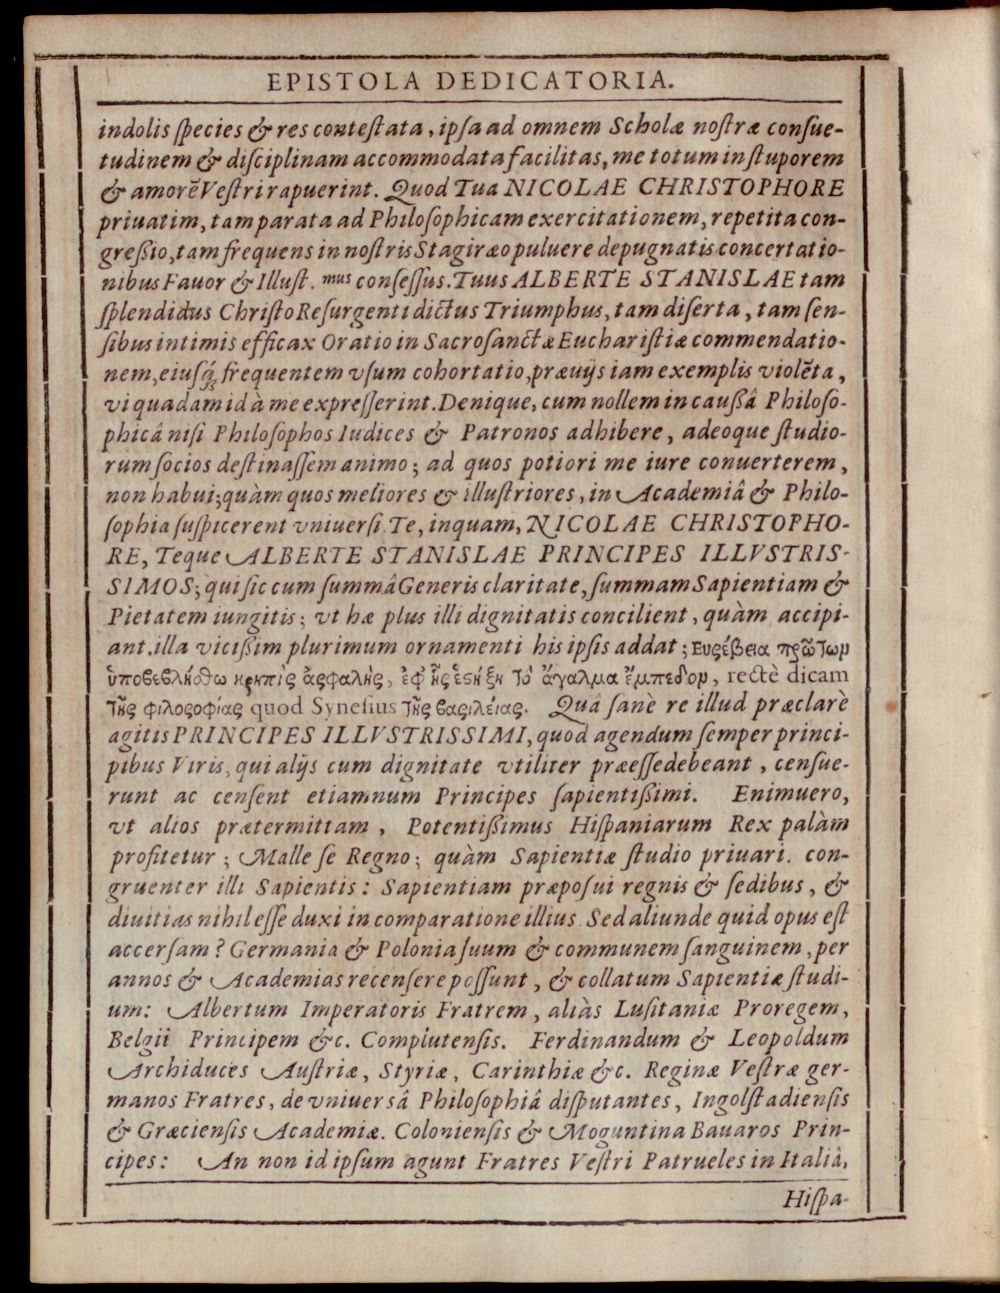 EPISTOLA DEDICATORIA.
indolis ſpecies & res conteſtata, ipſa ad omnem Scholæ noſtræ conſue-
tudinem & diſciplinam accommodata facilitas, me totum in ſtuporem
& amorē Veſtri rapuerint. Quod Tua NICOLAE CHRISTOPHORE
priuatim, tam parata ad Philoſophicam exercitationem, repetita con-
greßio, tam frequens in noſtris Stagiræo puluere depugnatis concertatio-
nibus Fauor & Illuſt.mus conſeſſus. Tuus ALBERTE STANISLAE tam
ſplendidus Chriſto Reſurgenti dictus Triumphus, tam diſerta, tam ſen-
ſibus intimis efficax Oratio in Sacroſanctæ Euchariſtiæ commendatio-
nem, eiuſq́; frequentem vſum cohortatio, præuijs iam exemplis violēta,
vi quadam id à me expreſſerint. Denique, cum nollem in caußâ Philoſo-
phicâ niſi Philoſophos Iudices & Patronos adhibere, adeoque ſtudio-
rum ſocios deſtinaſſem animo; ad quos potiori me iure conuerterem,
non habui; quàm quos meliores & illuſtriores, in Academiâ & Philo-
ſophia ſuſpicerent vniuerſi. Te, inquam, NICOLAE CHRISTOPHO-
RE, Teque ALBERTE STANISLAE PRINCIPES ILLVSTRIS-
SIMOS; qui ſic cum ſummâ Generis claritate, ſummam Sapientiam &
Pietatem iungitis; vt hæ plus illi dignitatis concilient, quàm accipi-
ant. illa vicißim plurimum ornamenti his ipſis addat; Ευςέβεια πρῶτον
ὑποβεβλήσθω κρηπὶς ἀςφαλὴς, ἐφ' ἧς ἑςήξη τὸ ἄγαλμα ἔμπεδον, rectè dicam
τῆς φιλοςοφίας quod Syneſius τῆς βαςιλείας. Quâ ſanè re illud præclarè
agitis PRINCIPES ILLVSTRISSIMI, quod agendum ſemper princi-
pibus Viris, qui alijs cum dignitate vtiliter præeſſe debeant, cenſue-
runt ac cenſent etiamnum Principes ſapientißimi. Enimuero,
vt alios prætermittam, Potentißimus Hiſpaniarum Rex palàm
profitetur; Malle ſe Regno; quàm Sapientiæ ſtudio priuari. con-
gruenter illi Sapientis: Sapientiam præpoſui regnis & ſedibus, &
diuitias nihil eſſe duxi in comparatione illius. Sed aliunde quid opus eſt
accerſam? Germania & Polonia ſuum & communem ſanguinem, per
annos & Academias recenſere poſſunt, & collatum Sapientiæ ſtudi-
um: Albertum Imperatoris Fratrem, aliàs Luſitaniæ Proregem,
Belgii Principem &c. Complutenſis. Ferdinandum & Leopoldum
Archiduces Auſtriæ, Styriæ, Carinthiæ &c. Reginæ Veſtræ ger-
manos Fratres, de vniuersâ Philoſophiâ diſputantes, Ingolſtadienſis
& Græcienſis Academiæ. Colonienſis & Moguntina Bauaros Prin-
cipes: An non id ipſum agunt Fratres Veſtri Patrueles in Italiâ,
Hiſpa-